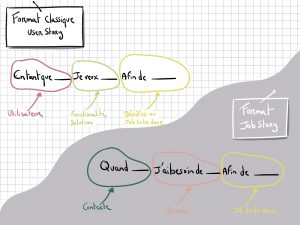 Format Classique
User Story
En tant que ___ Je veux ___ Afin de ___
Utilisateur
Fonctionnalité
Solution
Bénéfice ou
Job to be done
Format
Job Story
Quand ___ J'ai besoin de ___ Afin de ___
Contexte
Job to be done